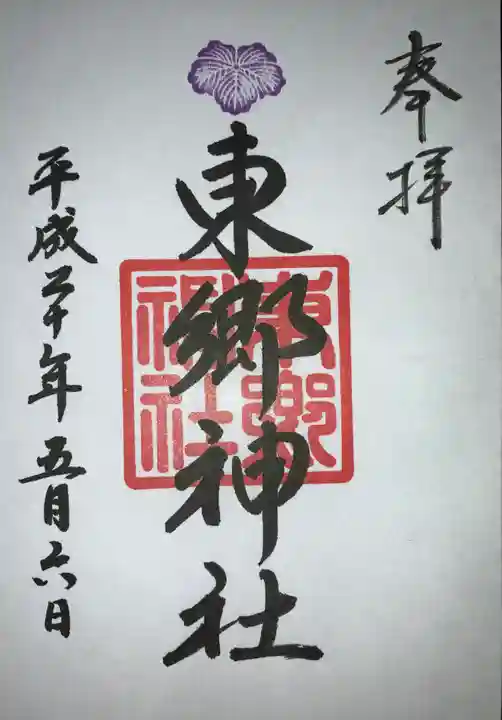 奉拝
東郷神社
東郷神社
平成二十年五月六日